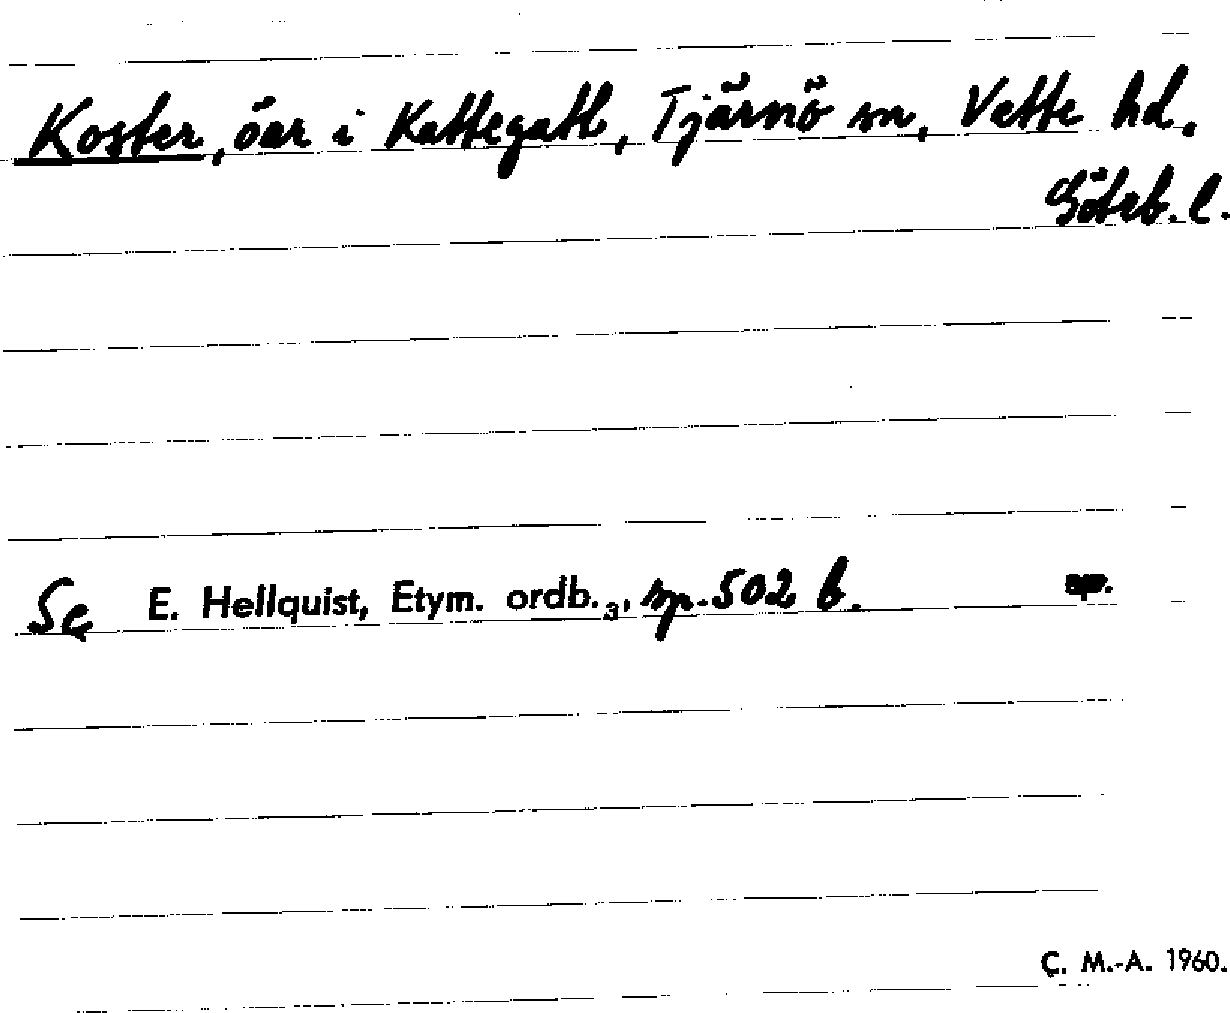 Koster, öar i Kattegatt, Tjärnö sn, Vette hd.
Göteb. l.
Se E. Hellquist, Etym. ordb.3, sp. 502 b.
C. M.-A. 1960.